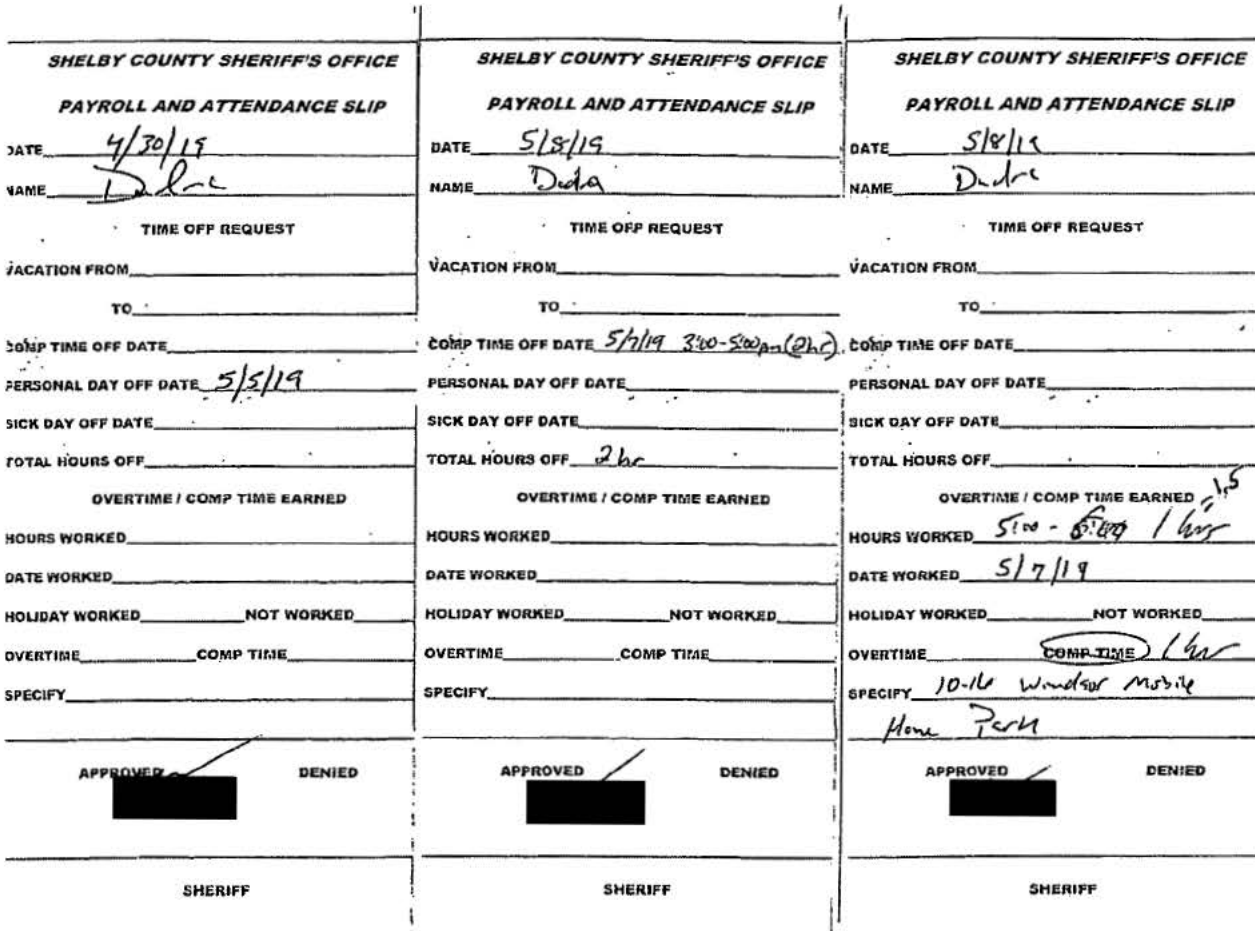 SHELBY COUNTY SHERIFF'S OFFICE
PAYROLL AND ATTENDANCE SLIP
DATE 4/30/19
NAME
TIME OFF REQUEST
VACATION FROM
TO
COMP TIME OFF DATE
PERSONAL DAY OFF DATE 5/5/19
SICK DAY OFF DATE
TOTAL HOURS OFF
OVERTIME / COMP TIME EARNED
HOURS WORKED
DATE WORKED
HOLIDAY WORKED NOT WORKED
OVERTIME COMP TIME
SPECIFY
APPROVED DENIED
SHERIFF
SHELBY COUNTY SHERIFF'S OFFICE
PAYROLL AND ATTENDANCE SLIP
DATE 5/8/19
NAME
TIME OFF REQUEST
VACATION FROM
TO
COMP TIME OFF DATE 5/7/19 3:00-5:00pm (2hr)
PERSONAL DAY OFF DATE
SICK DAY OFF DATE
TOTAL HOURS OFF 2 hr
OVERTIME / COMP TIME EARNED
HOURS WORKED
DATE WORKED
HOLIDAY WORKED NOT WORKED
OVERTIME COMP TIME
SPECIFY
APPROVED DENIED
SHERIFF
SHELBY COUNTY SHERIFF'S OFFICE
PAYROLL AND ATTENDANCE SLIP
DATE 5/8/19
NAME
TIME OFF REQUEST
VACATION FROM
TO
COMP TIME OFF DATE
PERSONAL DAY OFF DATE
SICK DAY OFF DATE
TOTAL HOURS OFF
OVERTIME / COMP TIME EARNED 1.5
HOURS WORKED 5:00 - 1 hrs
DATE WORKED 5/7/19
HOLIDAY WORKED NOT WORKED
OVERTIME COMP TIME 1 hr
SPECIFY 10-16 Windsor Mobile
Home Park
APPROVED DENIED
SHERIFF